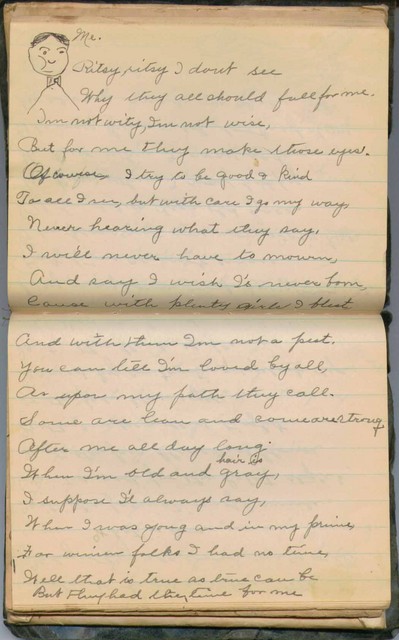 Me.
Ritsy, ritsy I dont see
Why they all should fall for me.
I'm not wity, I'm not wise,
But for me they make those eyes.
Of course, I try to be good & kind
To all I see, but with care I go my way,
Never hearing what they say.
I will never have to mourn,
And say I wish I'd never born,
Cause with plenty girls I blest
And with them I'm not a pest.
You can tell I'm loved by all,
As upon my path they call.
Some are lean and some are strong
After me all day long.
When I'm old and hair is gray,
I suppose I'll always say,
When I was yong and in my prime,
For wimin folks I had no time,
Well that is true as true can be
But They had their time for me